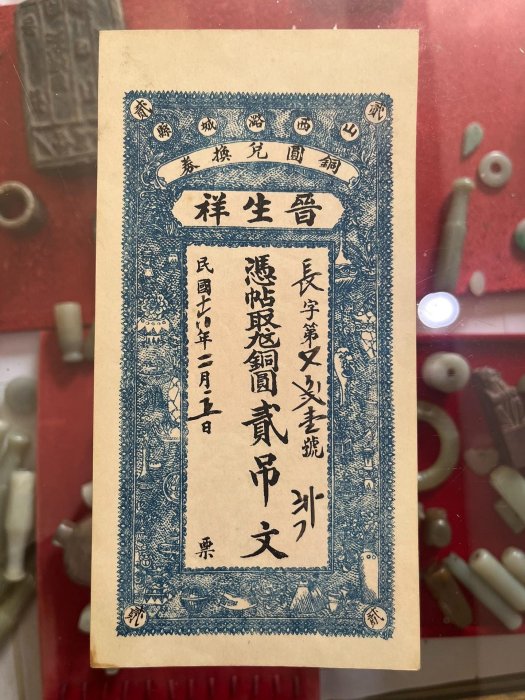 山西潞城縣
銅圓兌換券
晉生祥
長字第壹號
憑帖取兌銅圓貳吊文
民國年二月五日
票